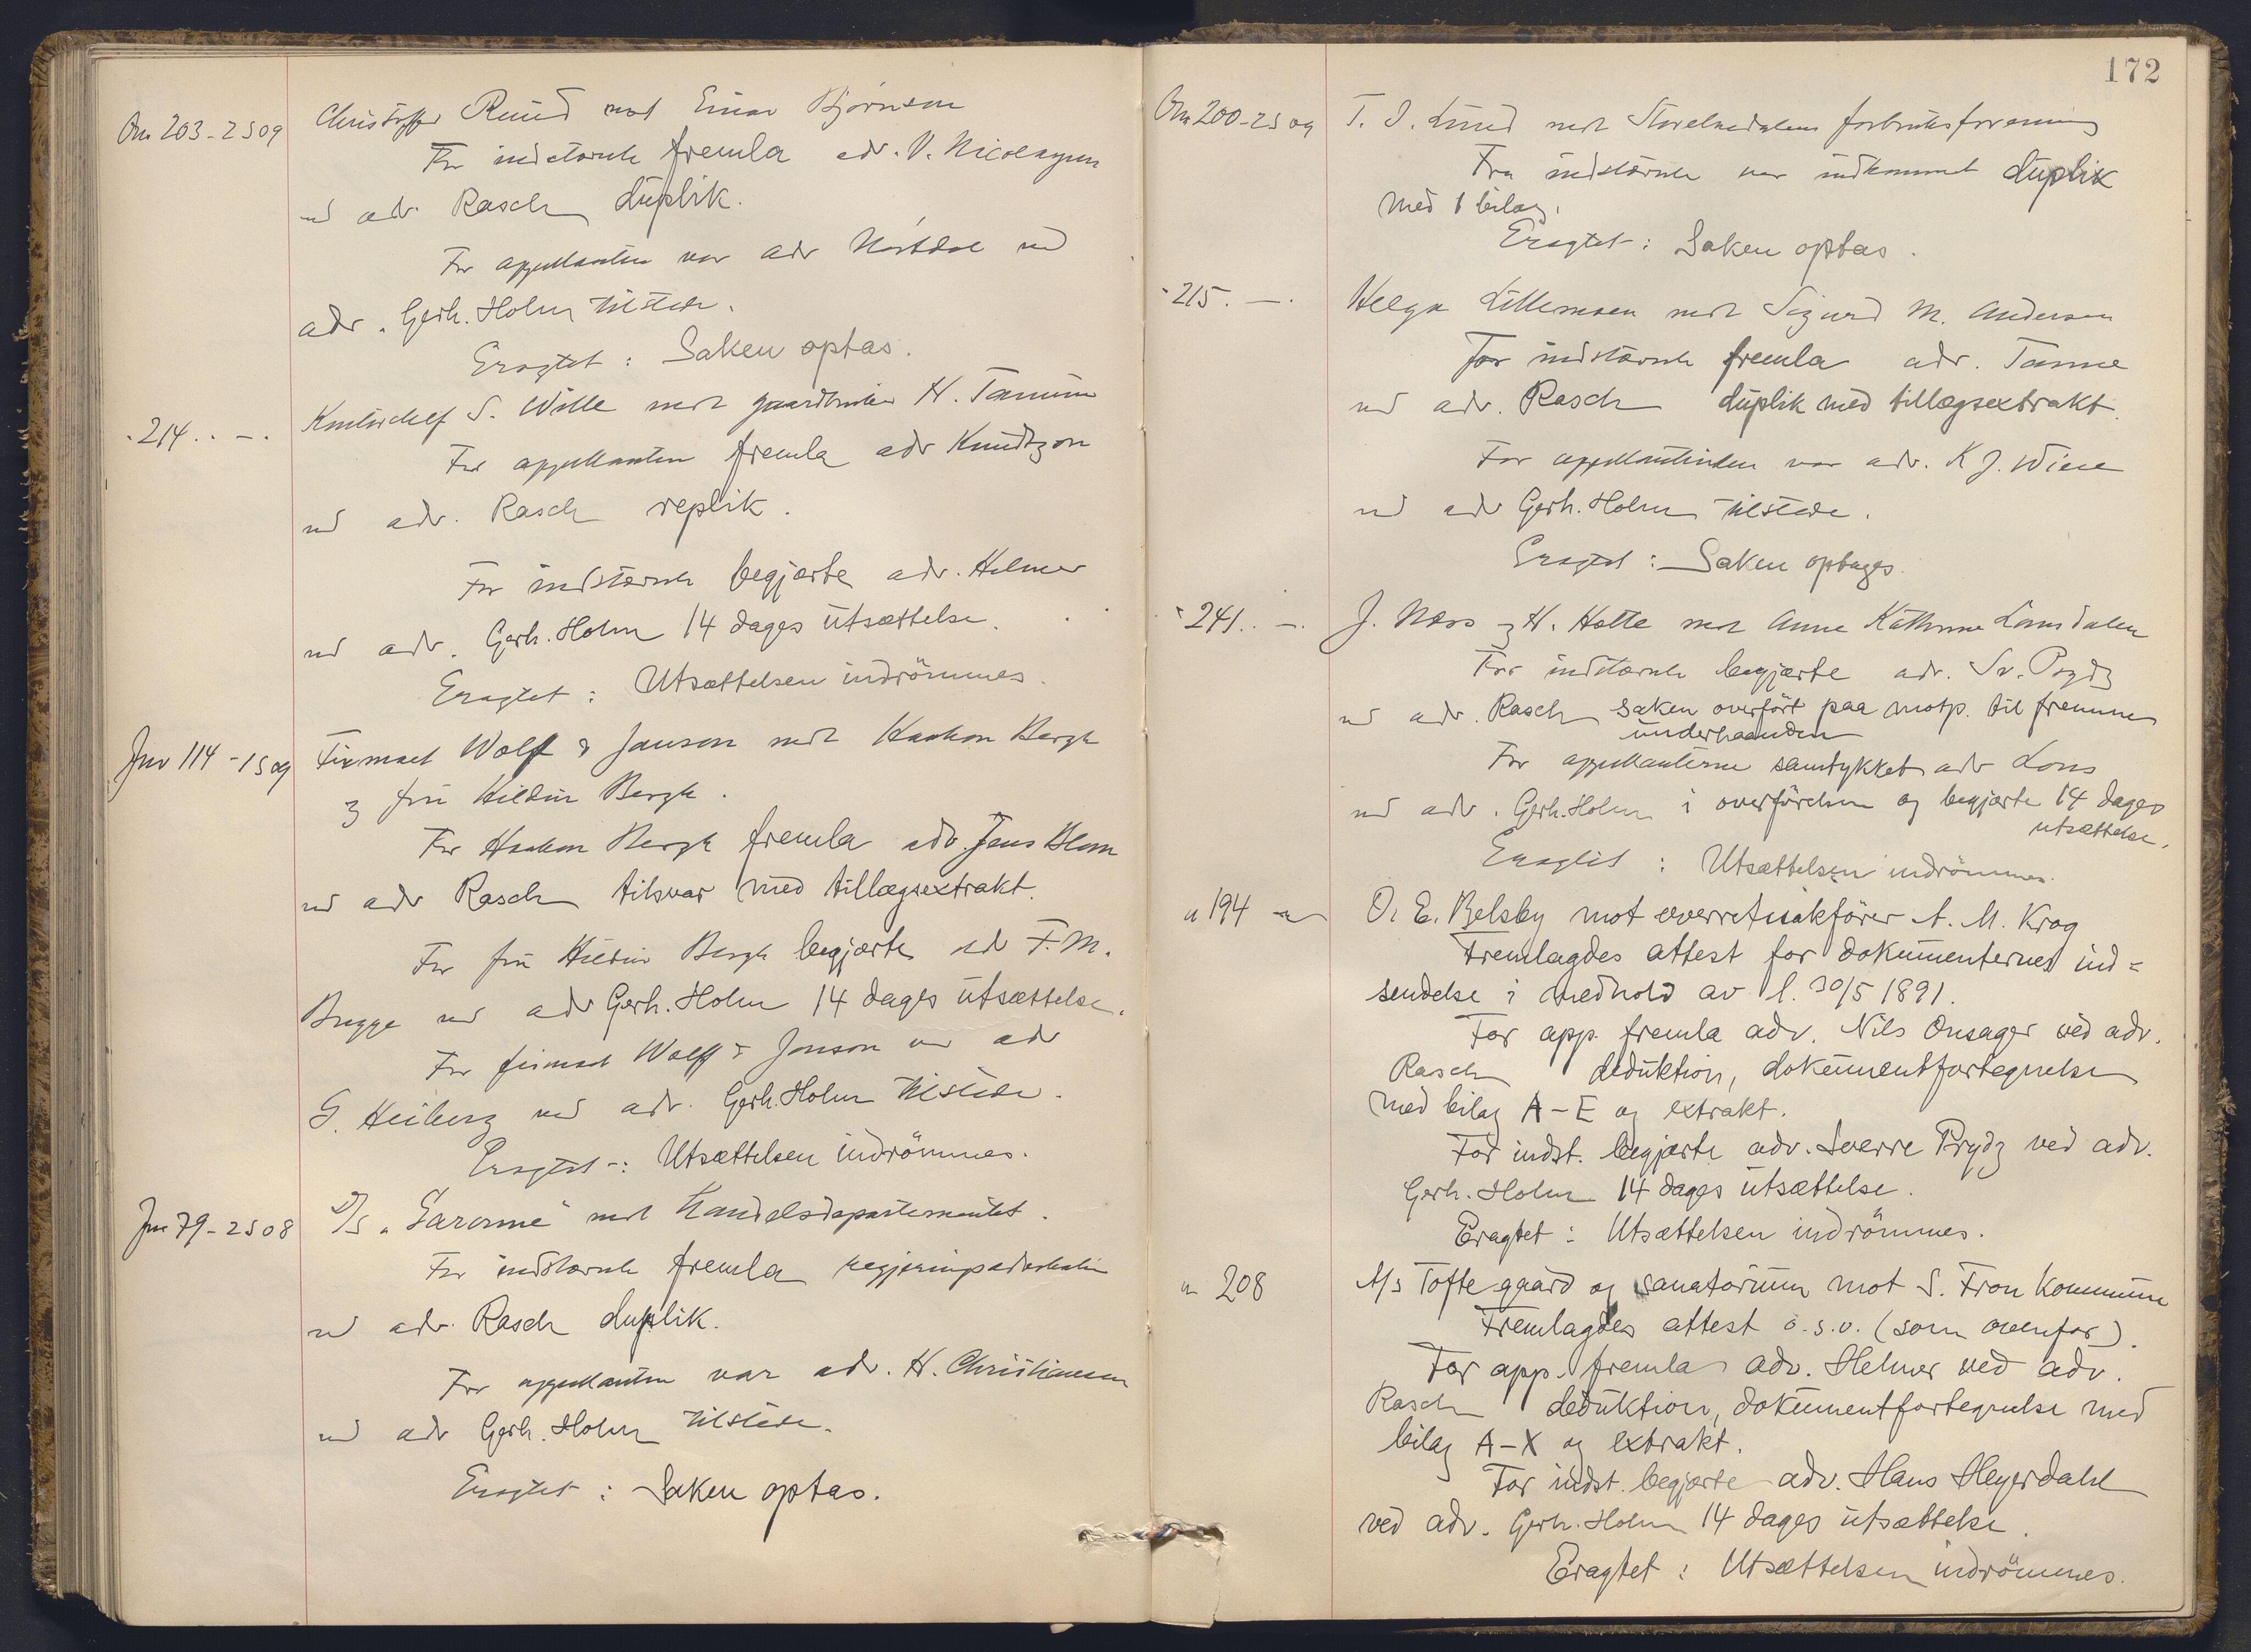 Om 203-2 S 09 Christoffer Ruud mot Einar Bjørnson
For indstævnte fremla adv. V. Nicolaysen
ved adv. Rasch düplik.
For appellanten var adv ved
adv. Gerh. Holm tilstede.
Eragtet: Saken optas.
- 214. - - S. Wille mot gaardbruker H. Tanum
For appellanten fremla adv Knudtzon
ved adv. Rasch replik.
For indstævnte begjærte adv. Helmer
ved adv. Gerh. Holm 14 dages ütsættelse.
Eragtet: Utsættelsen indrömmes.
Jnv 114 - 1 S 09 Firmaet Wolff & Janson mot Haakon Bergh
og frü Hildur Bergh.
For Haakon Bergh fremla adv. Jens Blom
ved adv Rasch tilsvar med tillægsextrakt.
For frü Hildur Bergh begjærte adv F. M.
Bugge ved adv Gerh. Holm 14 dages ütsættelse.
For firmaet Wolff & Janson var adv
G. Heiberg ved adv. Gerh. Holm tilstede.
Eragtet: Utsættelsen indrömmes.
Jnv 79-2 S 08 D/S „Garonne" mot Handelsdepartementet.
For indstævnte fremla regjeringsadvokaten
ved adv. Rasch duplik.
For appellanten var adv. H. Christiansen
ved adv Gerh. Holm tilstede.
Eragtet: Saken optas.
172
Om 200-2 S 09 T. J. Lund mot Storelvedalens forbruksforening
Fra indstævnte var indkommet düplik
med 1 bilag.
Eragtet: Saken optas.
- 215. -. Helga Lillemoen mot Sigurd M. Andersen
For indstævnte fremla adv. Tanne
ved adv. Rasch düplik med tillægsextrakt.
For appellantinden var adv. K J. Wiese
ved adv Gerh. Holm tilstede.
Eragtet: Saken optages.
- 241. -. J. Næss og H. Holte mot Anne Kathrine
For indstævnte begjærte adv. Sv. Prydz
ved adv. Rasch saken overført paa motp. til fremme
ünderhaanden
For appellanterne samtykket adv Lous
ved adv. Gerh. Holm i overförelsen og begjærte 14 dages
utsættelse.
Eragtet: Utsættelsen indrömmes.
" 194 - " O. E. Belsby mot overretssakförer A. M. Krog
Fremlagdes attest for dokümenternes ind=
sendelse i medhold av l. 30/5 1891.
For app. fremla adv. Nils Onsager ved adv.
Rasch dedüktion, dokümentfortegnelse
med bilag A-E og extrakt.
For indst. begjærte adv. Sverre Prydz ved adv.
Gerh. Holm 14 dages ütsættelse.
Eragtet: Utsættelsen indrömmes.
" 208 A/s Tofte gaard og sanatorium mot S. Fron Kommune
Fremlagdes attest o.s.v. (som ovenfor).
For app. fremla adv. Helmer ved adv.
Rasch dedüktion, dokümentfortegnelse med
bilag A-X og extrakt.
For indst. begjærte adv. Hans Heyerdahl
ved adv. Gerh. Holm 14 dages ütsættelse.
Eragtet: Utsættelsen indrömmes.